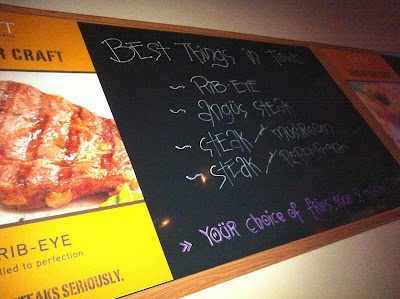 R CRAFT
RIB-EYE
lled to perfection
STEAKS SERIOUSLY.
BEST THINGS in TOWN
~ RIB-EYE
~ angus steak
~ steak / mushroom
~ steak /
» YOUR choice of fries, rice